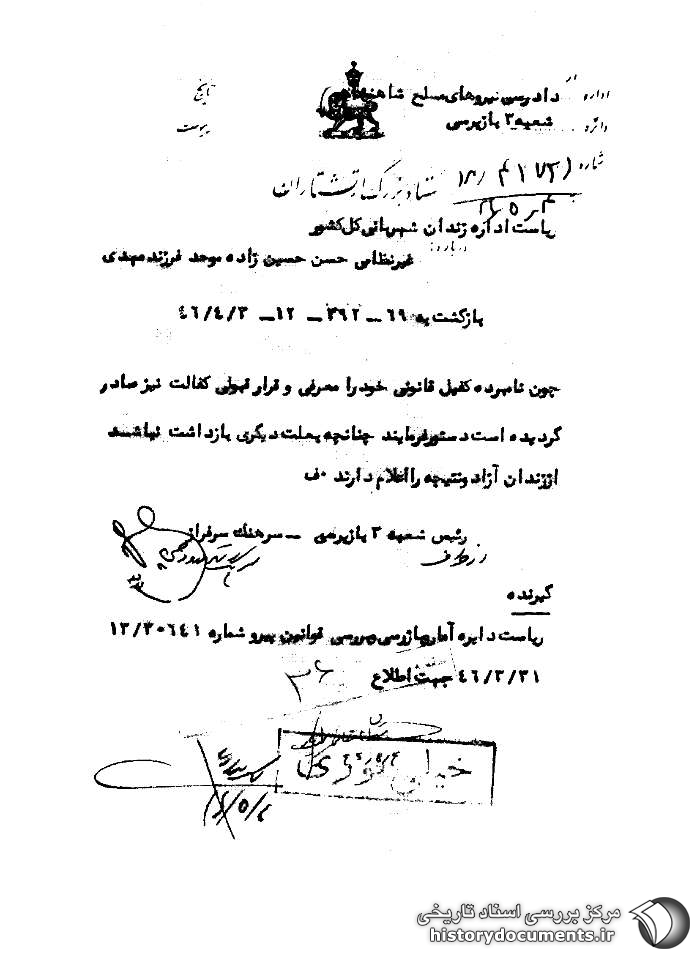 اداره دادرسی نیروهای مسلح شاهنشاهی
تاریخ
دائره شعبه ۲ بازپرسی
پیوست
شماره
ستاد بزرگ ارتشتاران
ریاست اداره زندان شهربانی کل کشور
درباره:
غیرنظامی حسن حسین زاده موحد فرزند مهدی
بازگشت به ۶۹ – ۳۶۲ – ۱۲ – ۴۶/۴/۳
چون نامبرده کفیل قانونی خود را معرفی و قرار قبولی کفالت نیز صادر
گردیده است دستور فرمایند چنانچه بعلت دیگری بازداشت نباشد
از زندان آزاد و نتیجه را اعلام دارند .ف
رئیس شعبه ۲ بازپرسی – سرهنگ سرفراز
از طرف
گیرنده
ریاست دایره آمار بازرسی بررسی قوانین پیرو شماره ۱۲/۳۰۶۴۱
۴۶/۲/۳۱ جهت اطلاع
خیلی فوری
مرکز بررسی اسناد تاریخی
historydocuments.ir